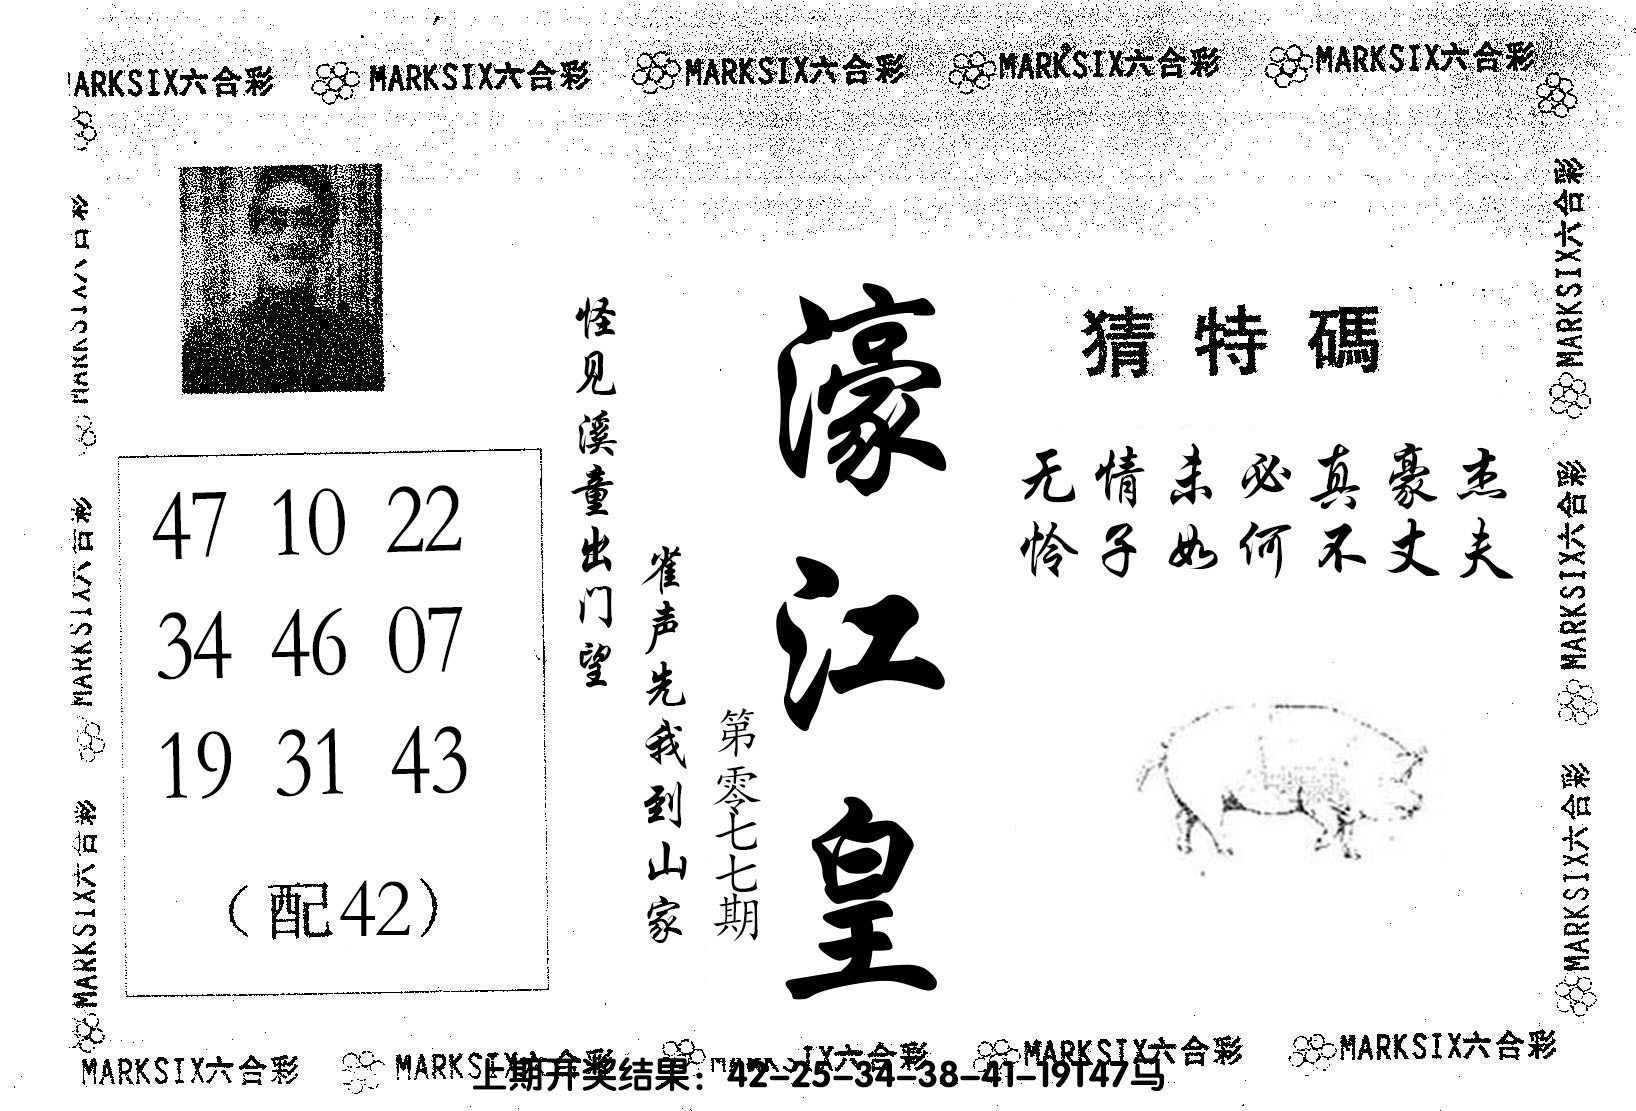 MARKSIX六合彩 MARKSIX六合彩 MARKSIX六合彩 MARKSIX六合彩 MARKSIX六合彩
猜特碼
无情未必真豪杰
怜子如何不丈夫
濠江皇
第零七七期
怪见溪童出门望
雀声先我到山家
47 10 22
34 46 07
19 31 43
(配42)
MARKSIX六合彩
MARKSIX六合彩
MARKSIX六合彩
MARKSIX六合彩
MARKSIX六合彩
MARKSIX六合彩
MARKSIX六合彩 MARKSIX六合彩 MARKSIX六合彩 MARKSIX六合彩 MARKSIX六合彩
上期开奖结果：42-25-34-38-41-19T47马